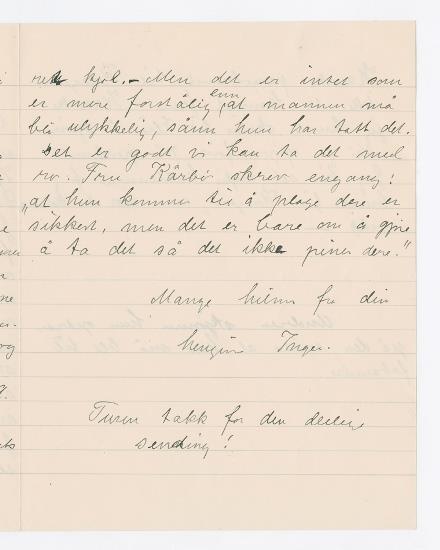 kjøl. - Men det er intet som
er mere forståelig enn at mannen må
bli ulykkelig, sånn hun har tatt det.
Det er godt vi kan ta det med
ro. Fru Kårbø skrev engang:
"at hun kommer til å plage dere er
sikkert, men det er bare om å gjøre
å ta det så det ikke piner dere."
Mange hilsner fra din
hengivne Inger.
Tusen takk for den deilige
sending!